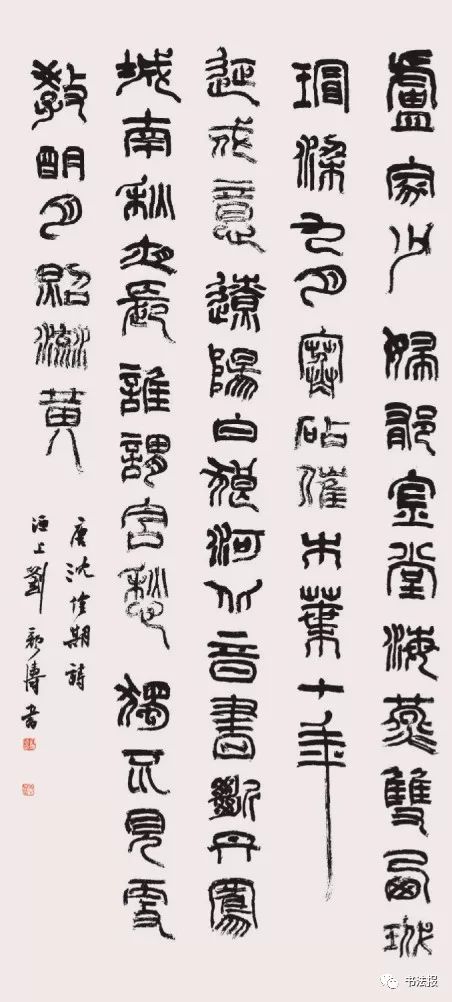 盧家少婦郁金堂海燕雙西玳
瑁梁九月寒砧催木葉十年
延戍意遼陽白狼河北音書斷丹鳳
城南秋夜長誰謂含愁獨不見更
教明月照流黃
唐沈佺期詩
洹上劉顏濤書
书法报